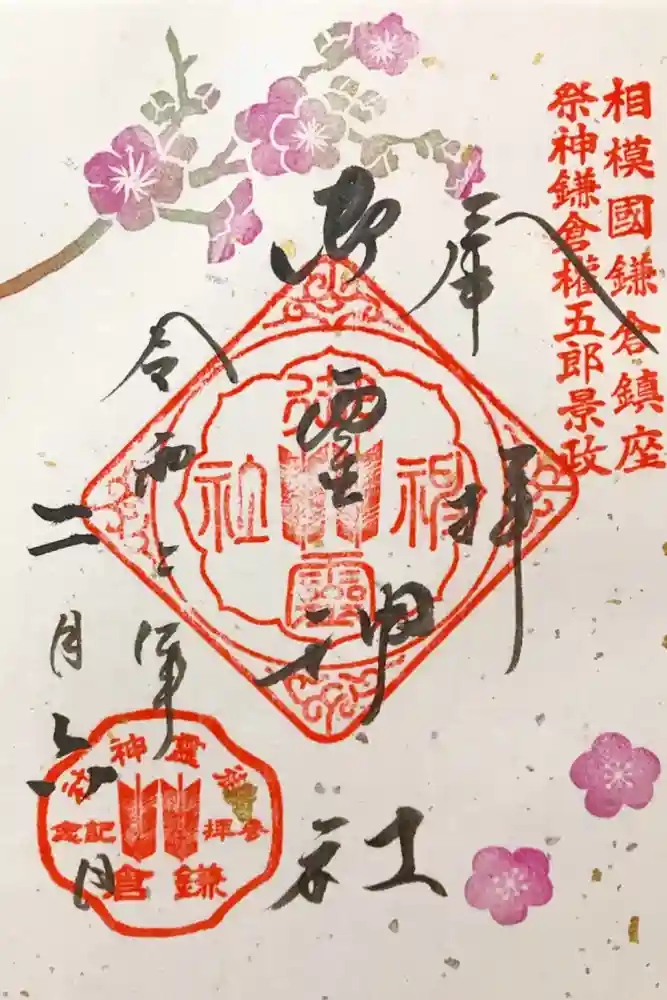 相模國鎌倉鎮座
祭神鎌倉權五郎景政
奉拝
御靈神社
御靈神社
令和二年
二月六日
御霊神社
参拝記念
鎌倉